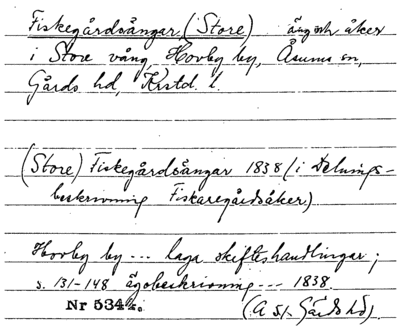 Fiskegårdsängar (Store) äng och åker
i Store vång, Hovby by, Åsums sn,
Gärds hd, Krstd. l.
(Store) Fiskegårdsängar 1838 (i Delnings-
beskrivning Fiskaregårdsåker)
Hovby by --- laga skifteshandlingar;
s. 131-148 ägobeskrivning --- 1838
Nr 5344.
(A 51. Gärds hd).